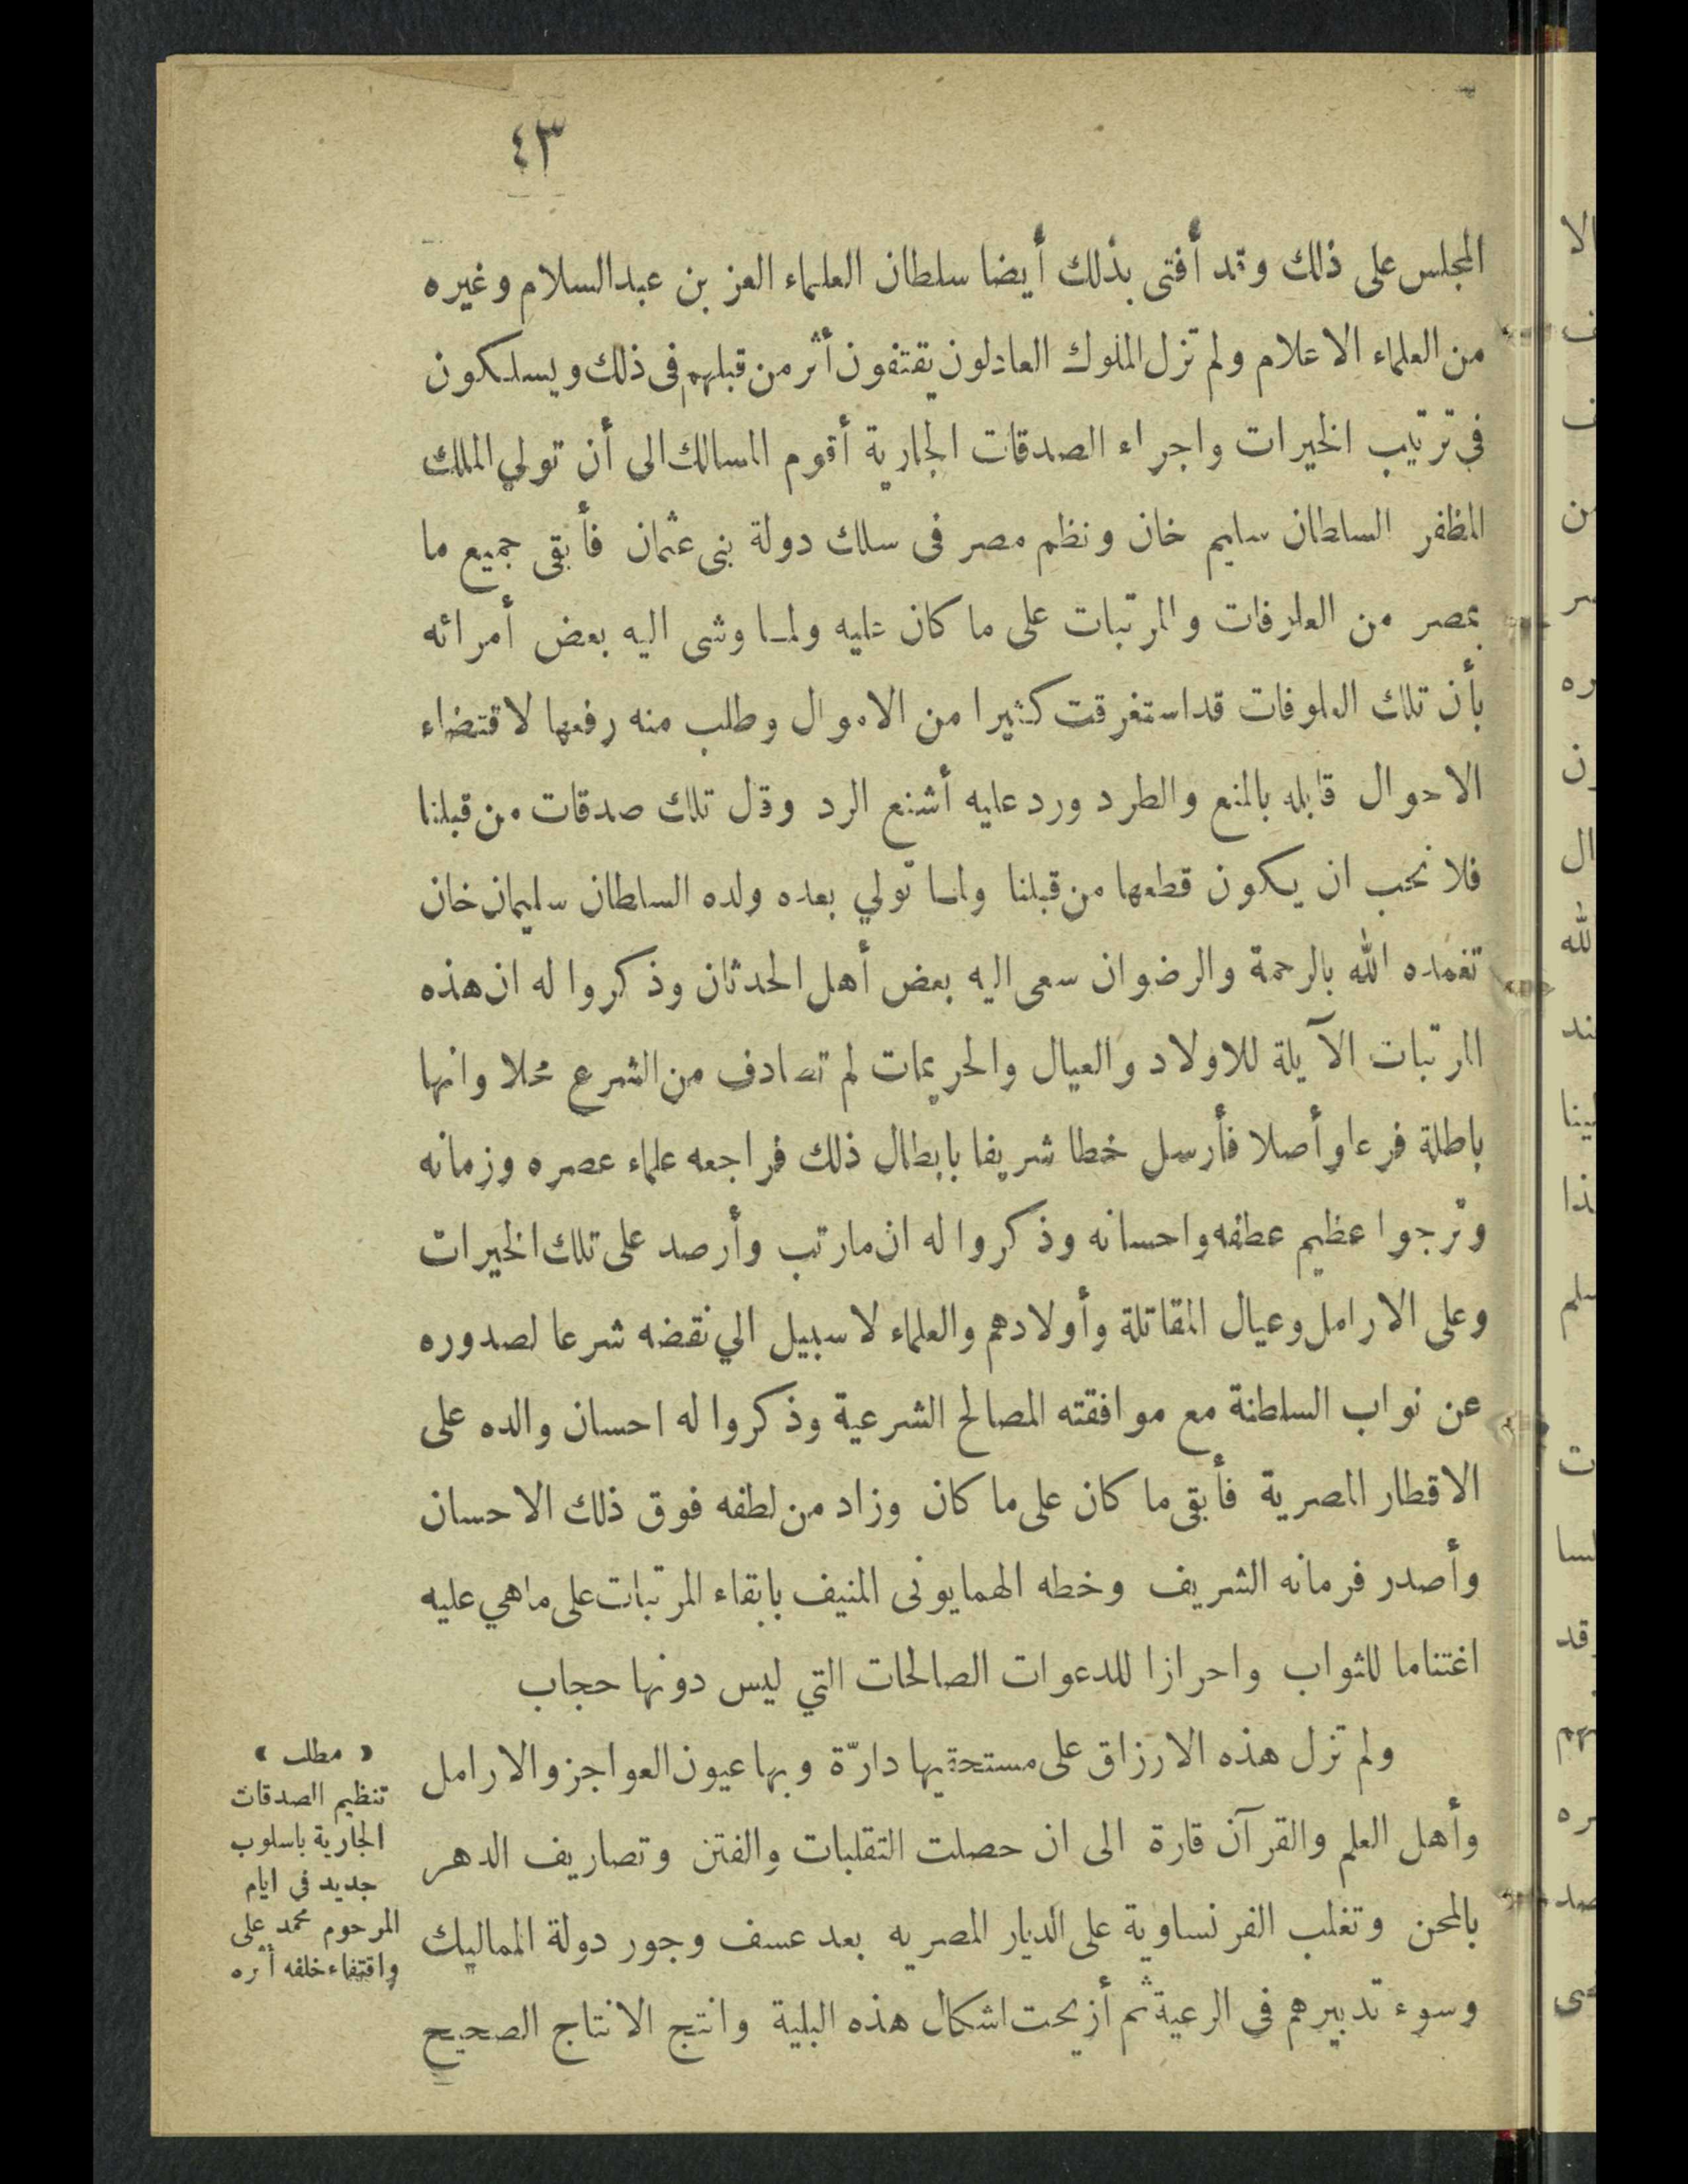 ٤٣
المجلس على ذلك وقد أفتى بذلك أيضا سلطان العلماء العز بن عبدالسلام وغيره
من العلماء الاعلام ولم تزل الملوك العادلون يقتفون أثر من قبلهم فى ذلك ويسلكون
في ترتيب الخيرات واجراء الصدقات الجارية أقوم المسالك الى أن تولي الملك
المظفر السلطان سليم خان ونظم مصر فى سلك دولة بنى عثمان فأبقى جميع ما
بمصر من العلوفات والمرتبات على ما كان عليه ولما وشى اليه بعض أمرائه
بأن تلك العلوفات قد استغرقت كثيرا من الاموال وطلب منه رفعها لاقتضاء
الاحوال قابله بالمنع والطرد ورد عليه أشنع الرد وقال تلك صدقات من قبلنا
فلا نحب ان يكون قطعها من قبلنا ولما تولي بعده ولده السلطان سليمان خان
تغمده الله بالرحمة والرضوان سعى اليه بعض أهل الحدثان وذكروا له ان هذه
المرتبات الآيلة للاولاد والعيال والحريمات لم تصادف من الشرع محلا وانها
باطلة فرعا وأصلا فأرسل خطا شريفا بابطال ذلك فراجعه علماء عصره وزمانه
وترجوا عظيم عطفه واحسانه وذكروا له ان مارتب وأرصد على تلك الخيرات
وعلى الارامل وعيال المقاتلة وأولادهم والعلماء لا سبيل الي نقضه شرعا لصدوره
عن نواب السلطنة مع موافقته المصالح الشرعية وذكروا له احسان والده على
الاقطار المصرية فأبقى ما كان على ما كان وزاد من لطفه فوق ذلك الاحسان
وأصدر فرمانه الشريف وخطه الهمايونى المنيف بابقاء المرتبات على ماهي عليه
اغتناما للثواب واحرازا للدعوات الصالحات التي ليس دونها حجاب
ولم تزل هذه الارزاق على مستحقيها دارّة وبها عيون العواجز والارامل
وأهل العلم والقرآن قارة الى ان حصلت التقلبات والفتن وتصاريف الدهر
بالمحن وتغلب الفرنساوية على الديار المصريه بعد عسف وجور دولة المماليك
وسوء تدبيرهم فى الرعية ثم أزيحت اشكال هذه البلية وانتج الانتاج الصحيح
﴿ مطلب ﴾
تنظيم الصدقات
الجارية باسلوب
جديد في ايام
المرحوم محمد على
واقتفاء خلفه أثره